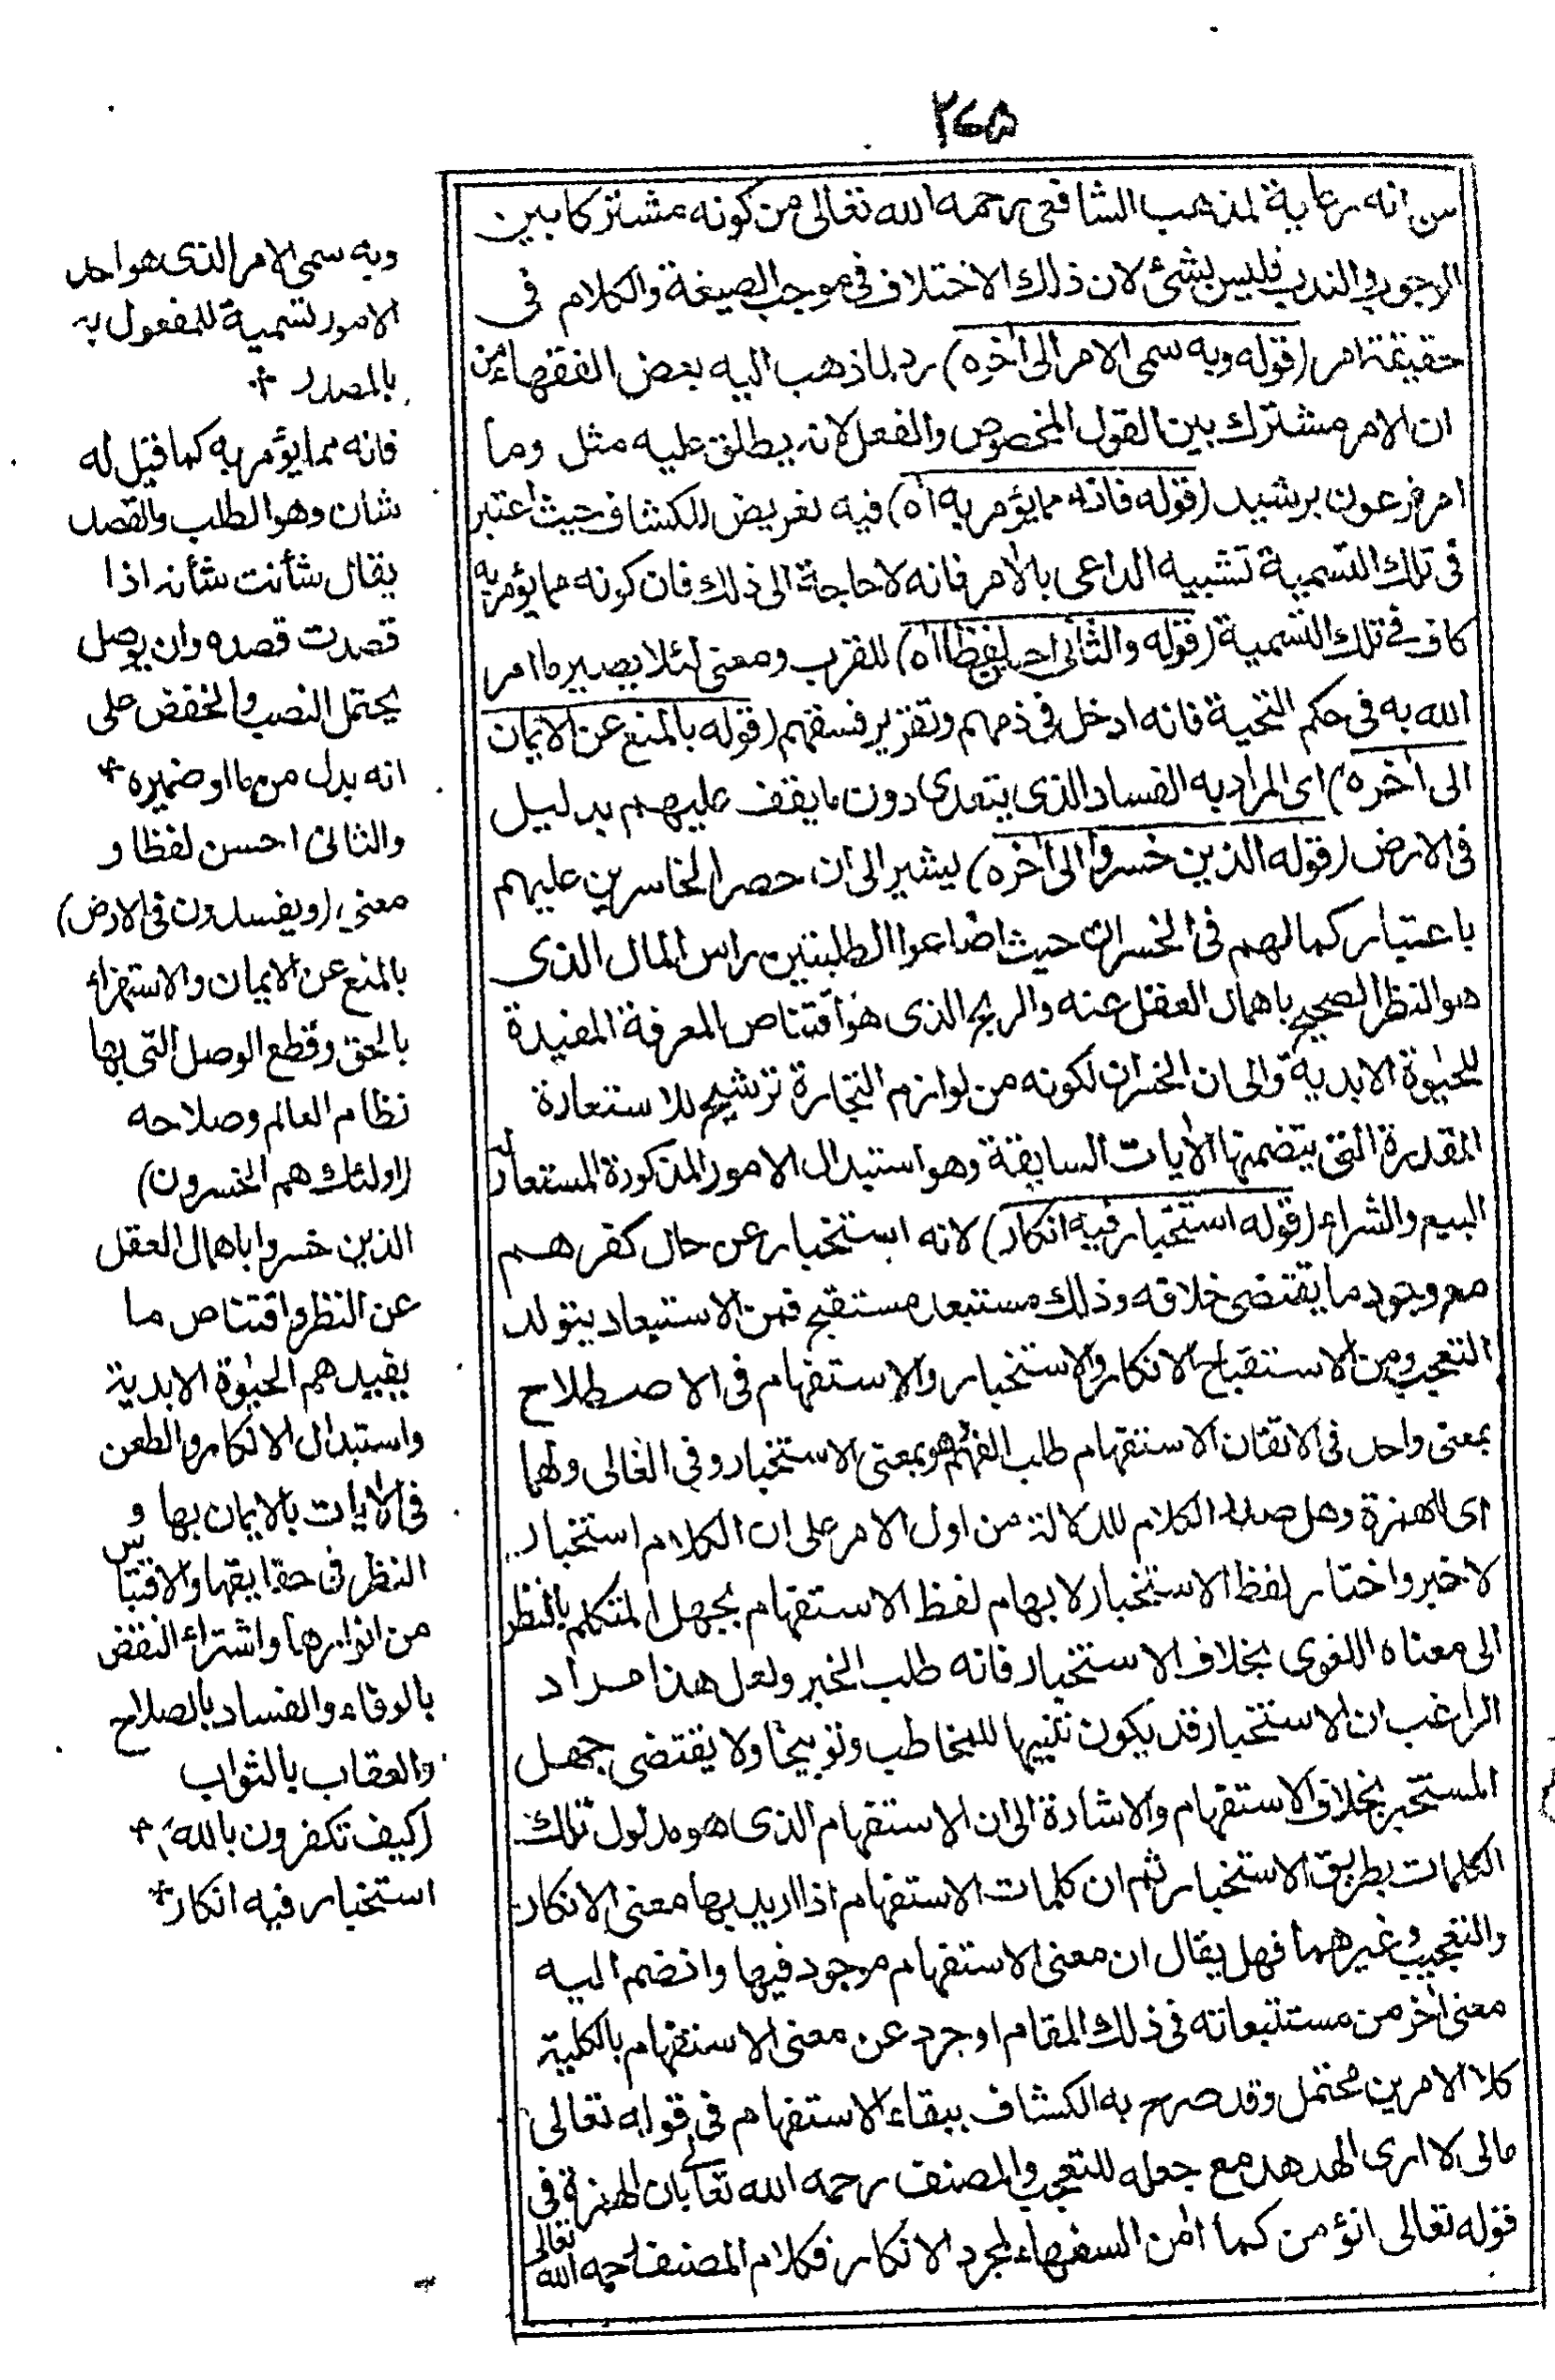 ٢٦٥
من انه رعاية لمذهب الشافعى رحمه الله تعالى من كونه مشتركا بين
الوجوب والندب فليس بشئ لان ذلك الاختلاف فى موجب الصيغة والكلام فى
حقيقة امر (قوله وبه سمى الامر الى اٰخره) رد لما ذهب اليه بعض الفقهاء من
ان الامر مشترك بين القول المخصوص والفعل لانه يطلق عليه مثل وما
امر فرعون برشيد (قوله فانه مما يؤمر به اه) فيه تعريض للكشاف حيث اعتبر
فى تلك التسمية تشبيه الداعى بالاٰمر فانه لا حاجة الى ذلك فان كونه مما يؤمر به
كاف فى تلك التسمية (قوله والثانى احسن لفظا اه) للقرب ومعنى لئلا يصير ما امر
الله به فى حكم التحية فانه ادخل فى ذمهم وتقرير فسقهم (قوله بالمنع عن الايمان
الى اٰخره) اى المراد به الفساد الذى يتعدى دون ما يقف عليهم بدليل
فى الارض (قوله الذين خسروا الى اٰخره) يشير الى ان حصر الخاسرين عليهم
باعتبار كمالهم فى الخسران حيث اضاعوا الطلبتين راس المال الذى
هو النظر الصحيح باهمال العقل عنه والربح الذى هو اقتناص المعرفة المفيدة
للحيٰوة الابدية والى ان الخسران لكونه من لوازم التجارة ترشيح للاستعارة
المقدرة التى يتضمنها الاٰيات السابقة وهو استبدال الامور المذكورة المستعار له
البيع والشراء (قوله استخبار فيه انكار) لانه استخبار عن حال كفرهم
مع وجود ما يقتضى خلافه وذلك مستبعد مستقبح فمن الاستبعاد يتولد
التعجيب ومن الاستقباح الانكار والاستخبار والاستفهام فى الاصطلاح
بمعنى واحد فى الاتقان الاستفهام طلب الفهم وهو بمعنى الاستخبار وفى الغالى ولهما
اى الهمزة وهل صدر الكلام للدلالة من اول الامر على ان الكلام استخبار
لا خبر واختار لفظ الاستخبار لايهام لفظ الاستفهام بجهل المتكلم بالنظر
الى معناه اللغوى بخلاف الاستخبار فانه طلب الخبر ولعل هذا مراد
الراغب ان الاستخبار قد يكون تنبيها للمخاطب وتوبيخا ولا يقتضى جهل
المستخبر بخلاف الاستفهام والاشارة الى ان الاستفهام الذى هو مدلول تلك
الكلمات بطريق الاستخبار ثم ان كلمات الاستفهام اذا اريد بها معنى الانكار
والتعجيب وغيرهما فهل يقال ان معنى الاستفهام موجود فيها وانضم اليه
معنى اٰخر من مستتبعاته فى ذلك المقام او جرد عن معنى الاستفهام بالكلية
كلا الامرين محتمل وقد صرح به الكشاف ببقاء الاستفهام فى قوله تعالى
مالى لا ارى الهدهد مع جعله للتعجب والمصنف رحمه الله تعالى بان الهمزة فى
قوله تعالى انؤمن كما اٰمن السفهاء لمجرد الانكار فكلام المصنف رحمه الله تعالى
وبه سمى الامر الذى هو احد
الامور تسمية للمفعول به
بالمصدر *
فانه مما يؤمر به كما قيل له
شان وهو الطلب والقصد
يقال شأنت شأنه اذا
قصدت قصده وان يوصل
يحتمل النصب والخفض على
انه بدل من ما او ضميره *
والثانى احسن لفظا و
معنى (ويفسدون فى الارض)
بالمنع عن الايمان والاستهزاء
بالحق وقطع الوصل التى بها
نظام العالم وصلاحه
(اولئك هم الخسرون)
الذين خسروا باهمال العقل
عن النظر واقتناص ما
يفيدهم الحيٰوة الابدية
واستبدال الانكار والطعن
فى الاٰيات بالايمان بها و
النظر فى حقايقها والاقتباس
من انوارها واشتراء النقض
بالوفاء والفساد بالصلاح
والعقاب بالثواب
(كيف تكفرون بالله) *
استخبار فيه انكار *